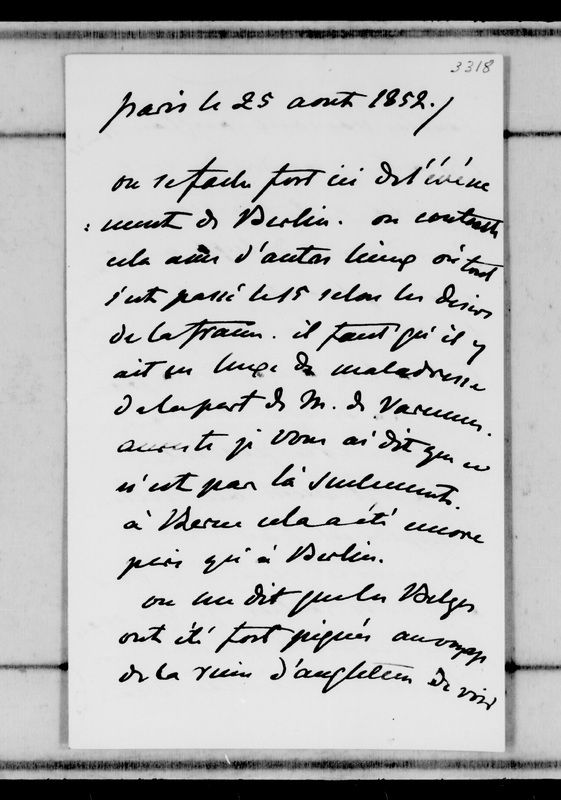 3318
paris le 25 aout 1852./
on se fache fort ici de l'événe
: ment de Berlin. on contraste
cela avec d'autres lieux où tout
s'est passé le 15 selon les désirs
de la france. il faut qu'il y
ait eu luxe de maladresse
de la part de M. de Varennes.
aureste je vous ai dit que ce
n'est pas là seulement.
à Berne cela a été encore
pire qu'à Berlin.
on me dit que les Belges
ont été fort piqués au voyage
de la reine d'angleterre de voir